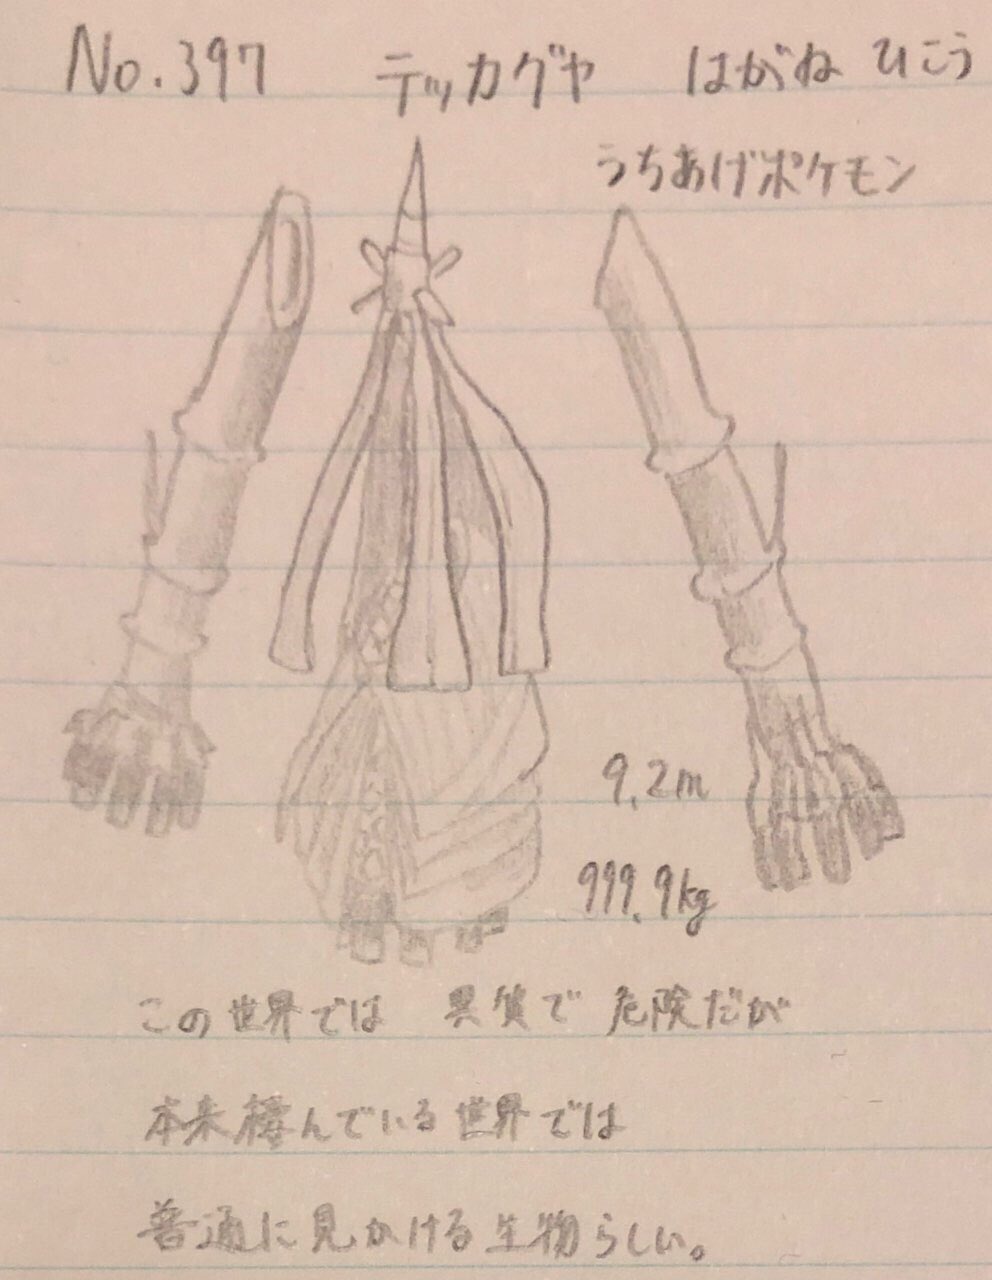 No.397 テッカグヤ はがね ひこう
うちあげポケモン
9.2m
999.9kg
この世界では 異質で 危険だが
本来棲んでいる世界では
普通に見かける生物らしい。